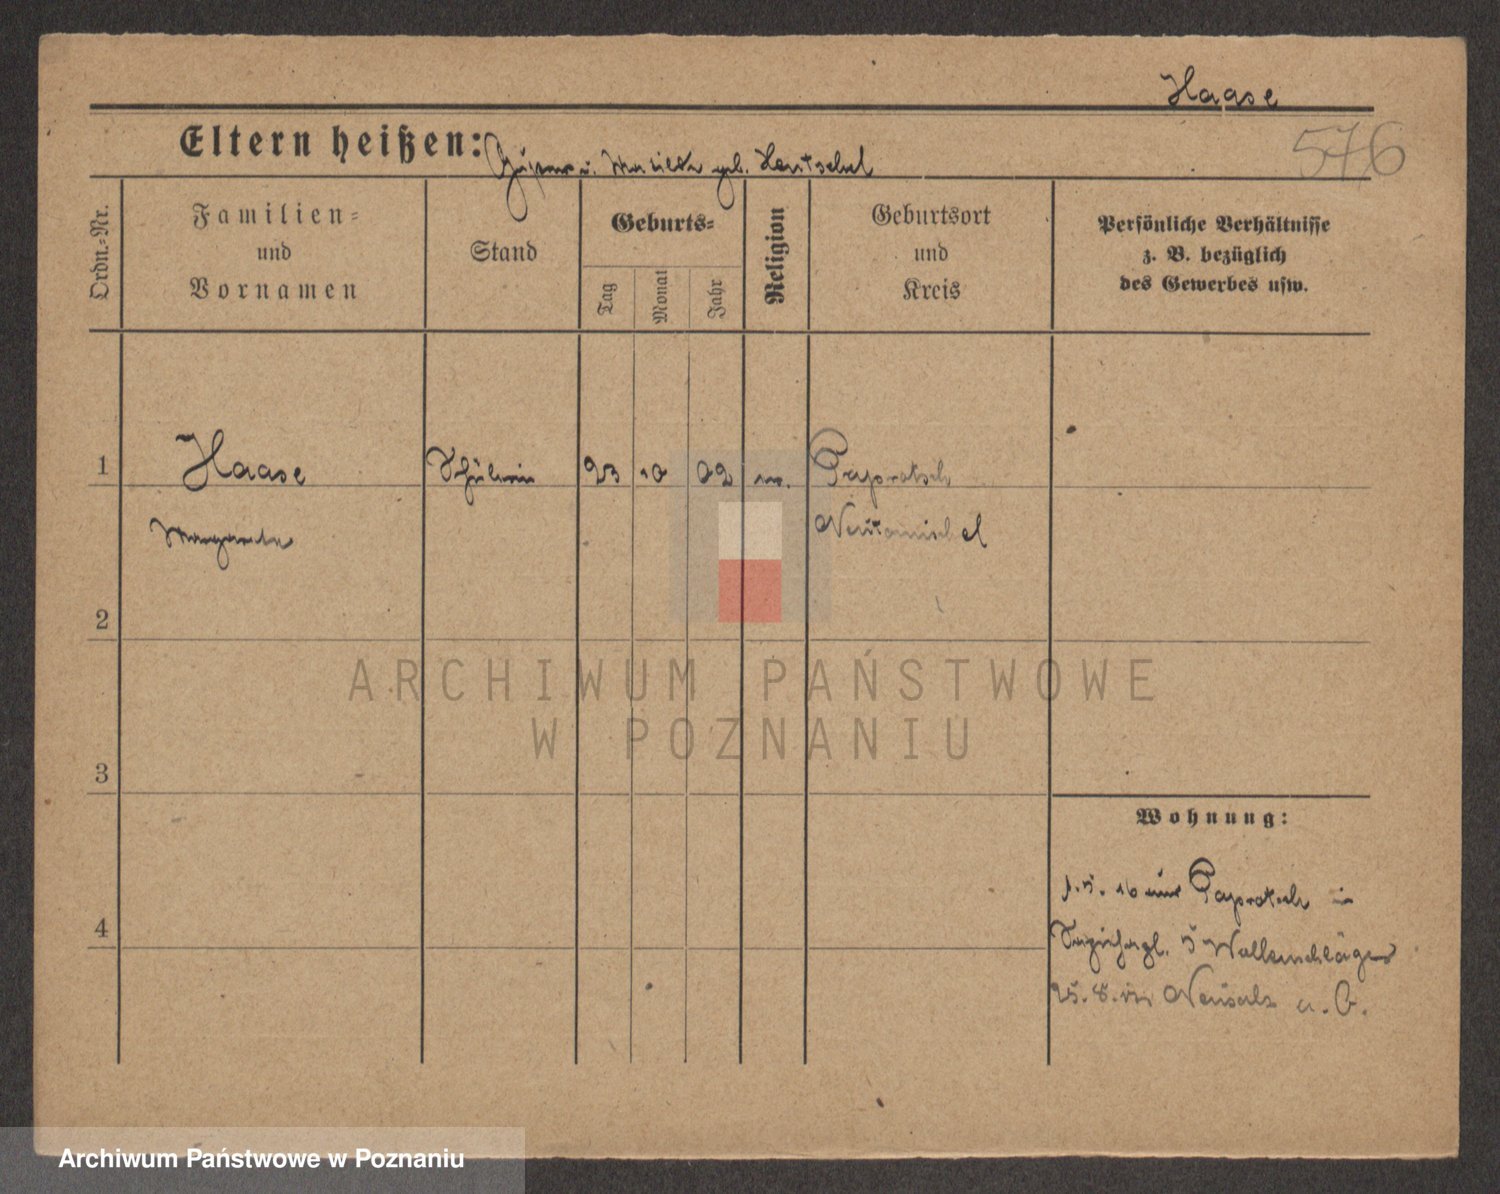 Haase
576
Eltern heißen: u. geb. Hentschel
Ordn.=Nr.
Familien=
und
Vornamen
Stand
Geburts=
Tag
Monat
Jahr
Religion
Geburtsort
und
Kreis
Persönliche Verhältnisse
z. B. bezüglich
des Gewerbes usw.
1
Haase Schülerin 23 10 02 Paprotsch
Margarete Neutomischel
2
3
4
Wohnung:
1. 5. 16 aus Paprotsch in
5 Wollenschläger
25. 8. Neusalz a. O.
ARCHIWUM PAŃSTWOWE
W POZNANIU
Archiwum Państwowe w Poznaniu